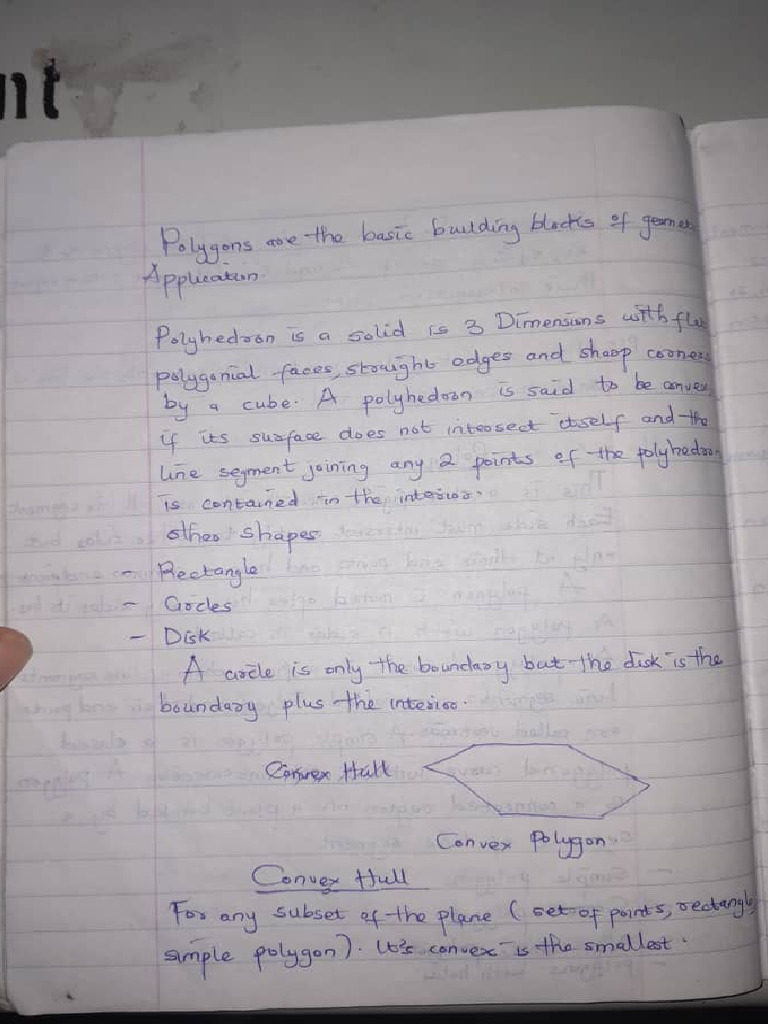 nt
Polygons are the basic building blocks of geomet
Application.
Polyhedron is a solid is 3 Dimensions with flat
polygonial faces, straight edges and sharp corners
by a cube. A polyhedron is said to be convex
if its surface does not intersect itself and the
line segment joining any 2 points of the polyhedron
is contained in the interior.
other shapes
- Rectangle
- Circles
- Disk
A circle is only the boundary but the disk is the
boundary plus the interior.
Convex Hull
Convex Polygon
Convex Hull
For any subset of the plane ( set of points, rectangle
simple polygon). It's convex is the smallest.